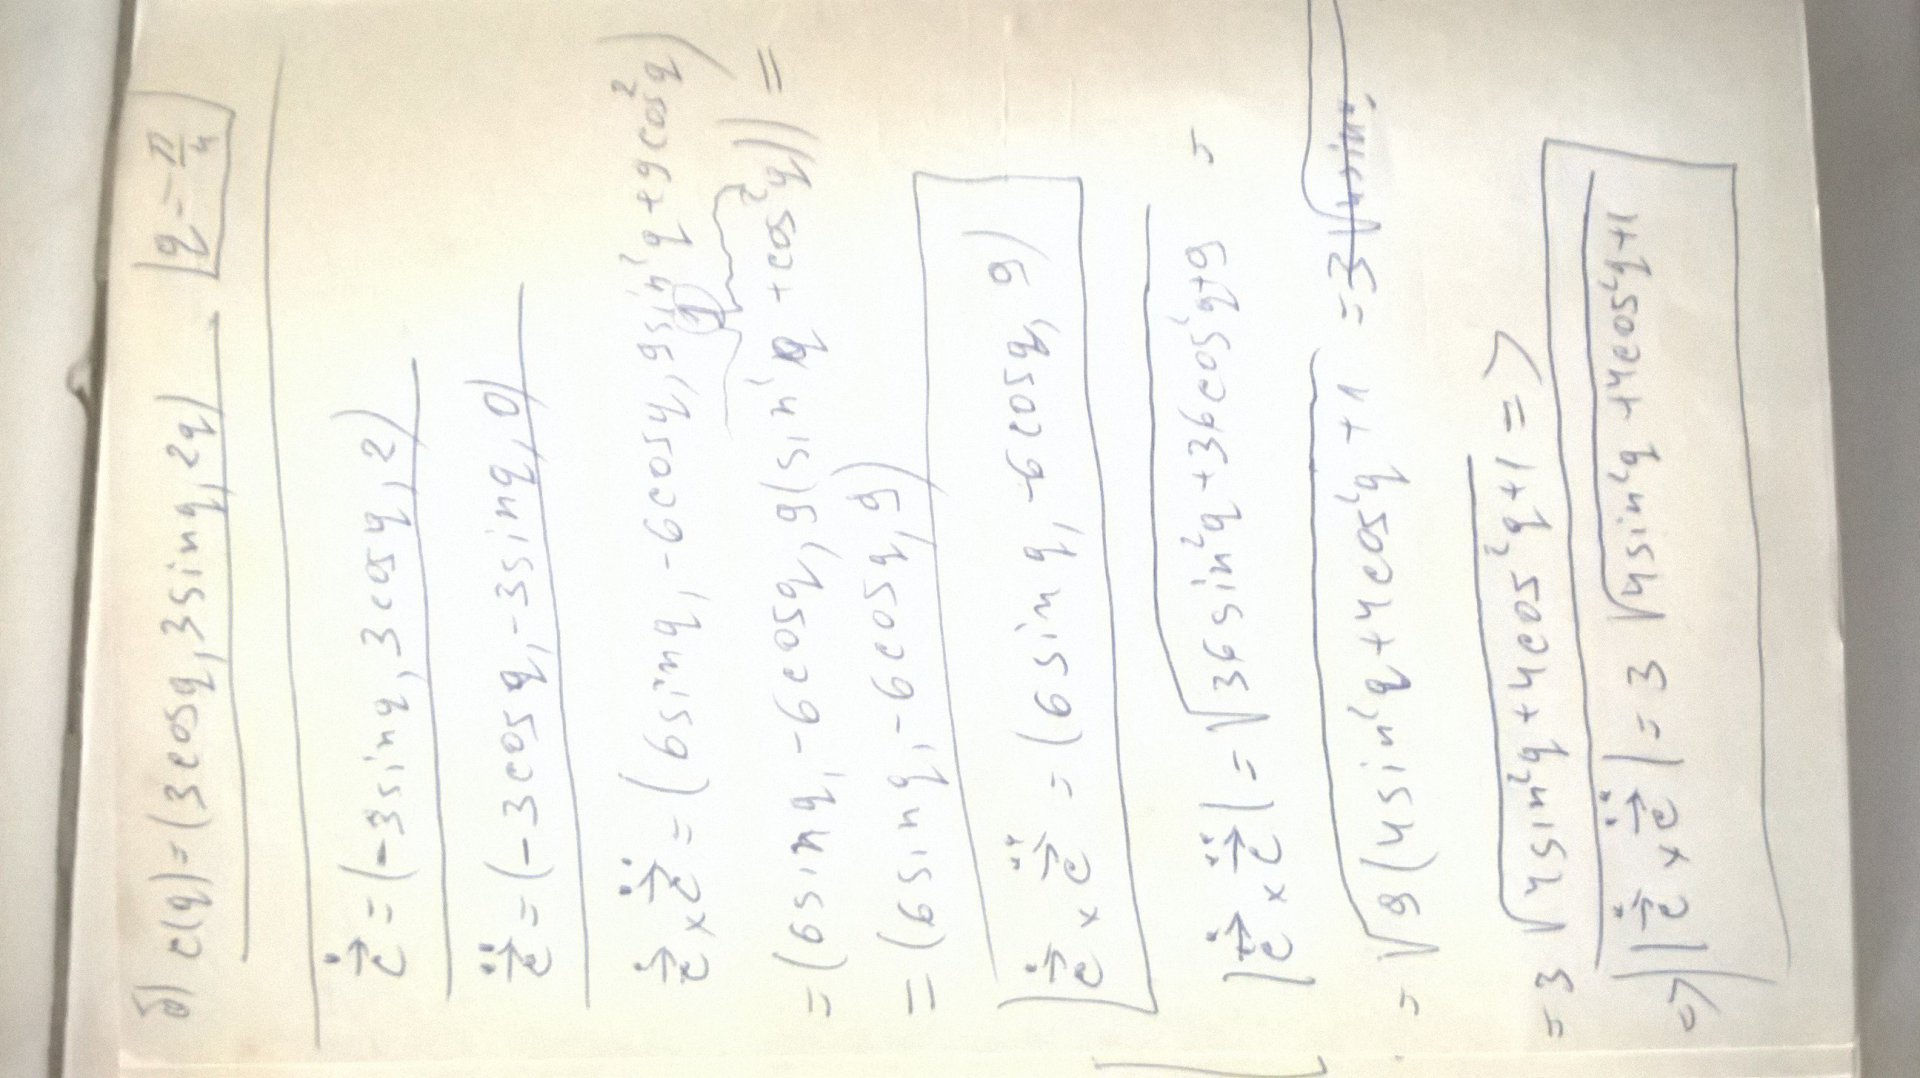 б) c(q)=(3cosq, 3sinq, 2q) q=π/4
ċ⃗=(-3sinq, 3cosq, 2)
c̈⃗=(-3cosq, -3sinq, 0)
ċ⃗×c̈⃗=(6sinq, -6cosq, 9sin²q+9cos²q)
=(6sinq, -6cosq, 9(sin²q+cos²q))=
=(6sinq, -6cosq, 9)
ċ⃗×c̈⃗=(6sinq, -6cosq, 9)
|ċ⃗×c̈⃗|=√36sin²q+36cos²q+9 =
=√9(4sin²q+4cos²q+1 =3√4sin²
=3√4sin²q+4cos²q+1 =>
=>|ċ⃗×c̈⃗|=3√4sin²q+4cos²q+1